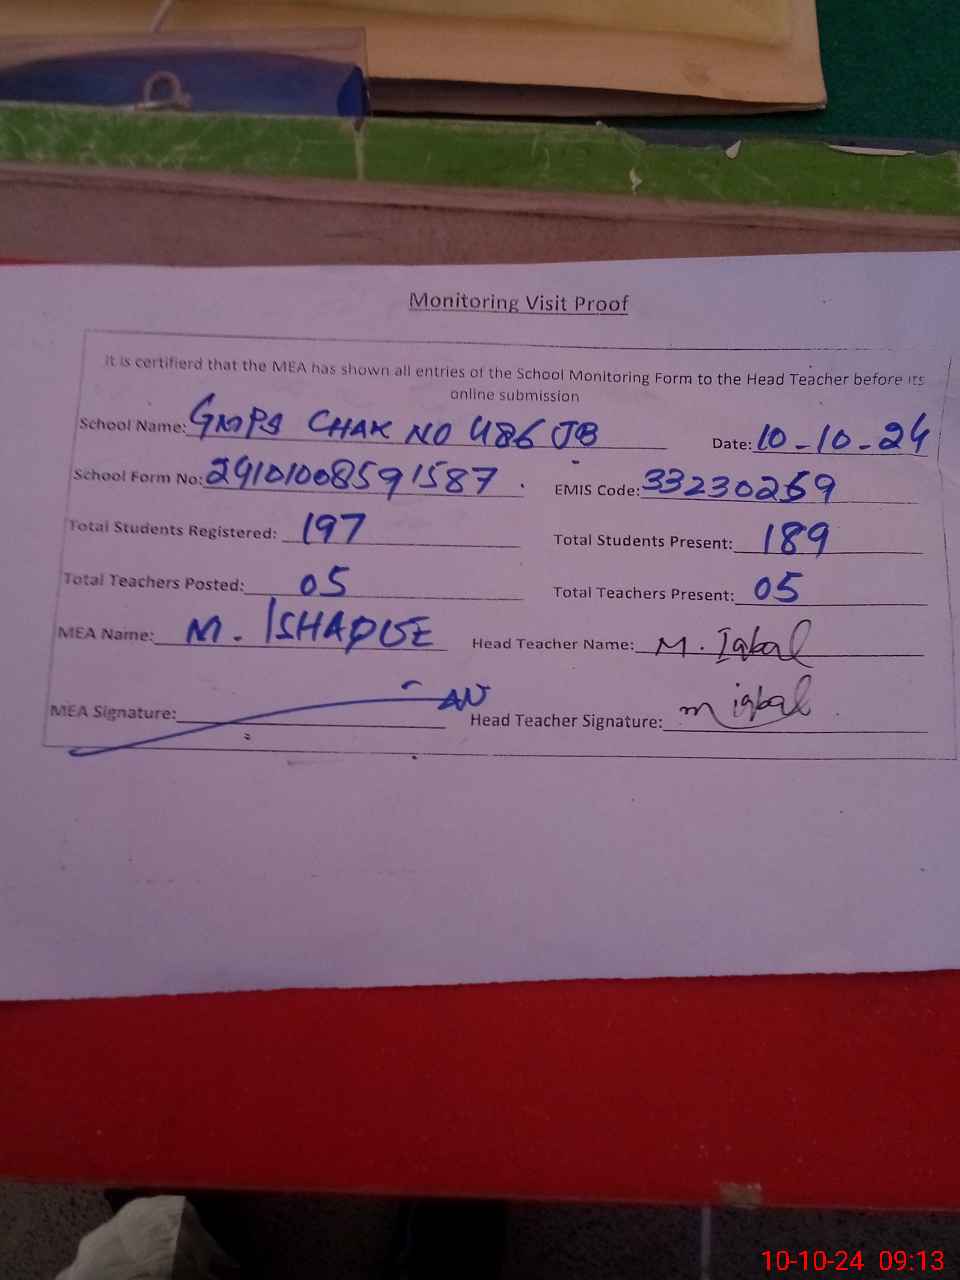 Monitoring Visit Proof
It is certifierd that the MEA has shown all entries of the School Monitoring Form to the Head Teacher before its
online submission
School Name: GMPS CHAK NO 486 JB Date: 10-10-24
School Form No: 29101008591587 . EMIS Code: 33230259
Total Students Registered: 197 Total Students Present: 189
Total Teachers Posted: 05 Total Teachers Present: 05
MEA Name: M. Head Teacher Name: M. Iqbal
MEA Signature: Head Teacher Signature: m iqbal
10-10-24 09:13